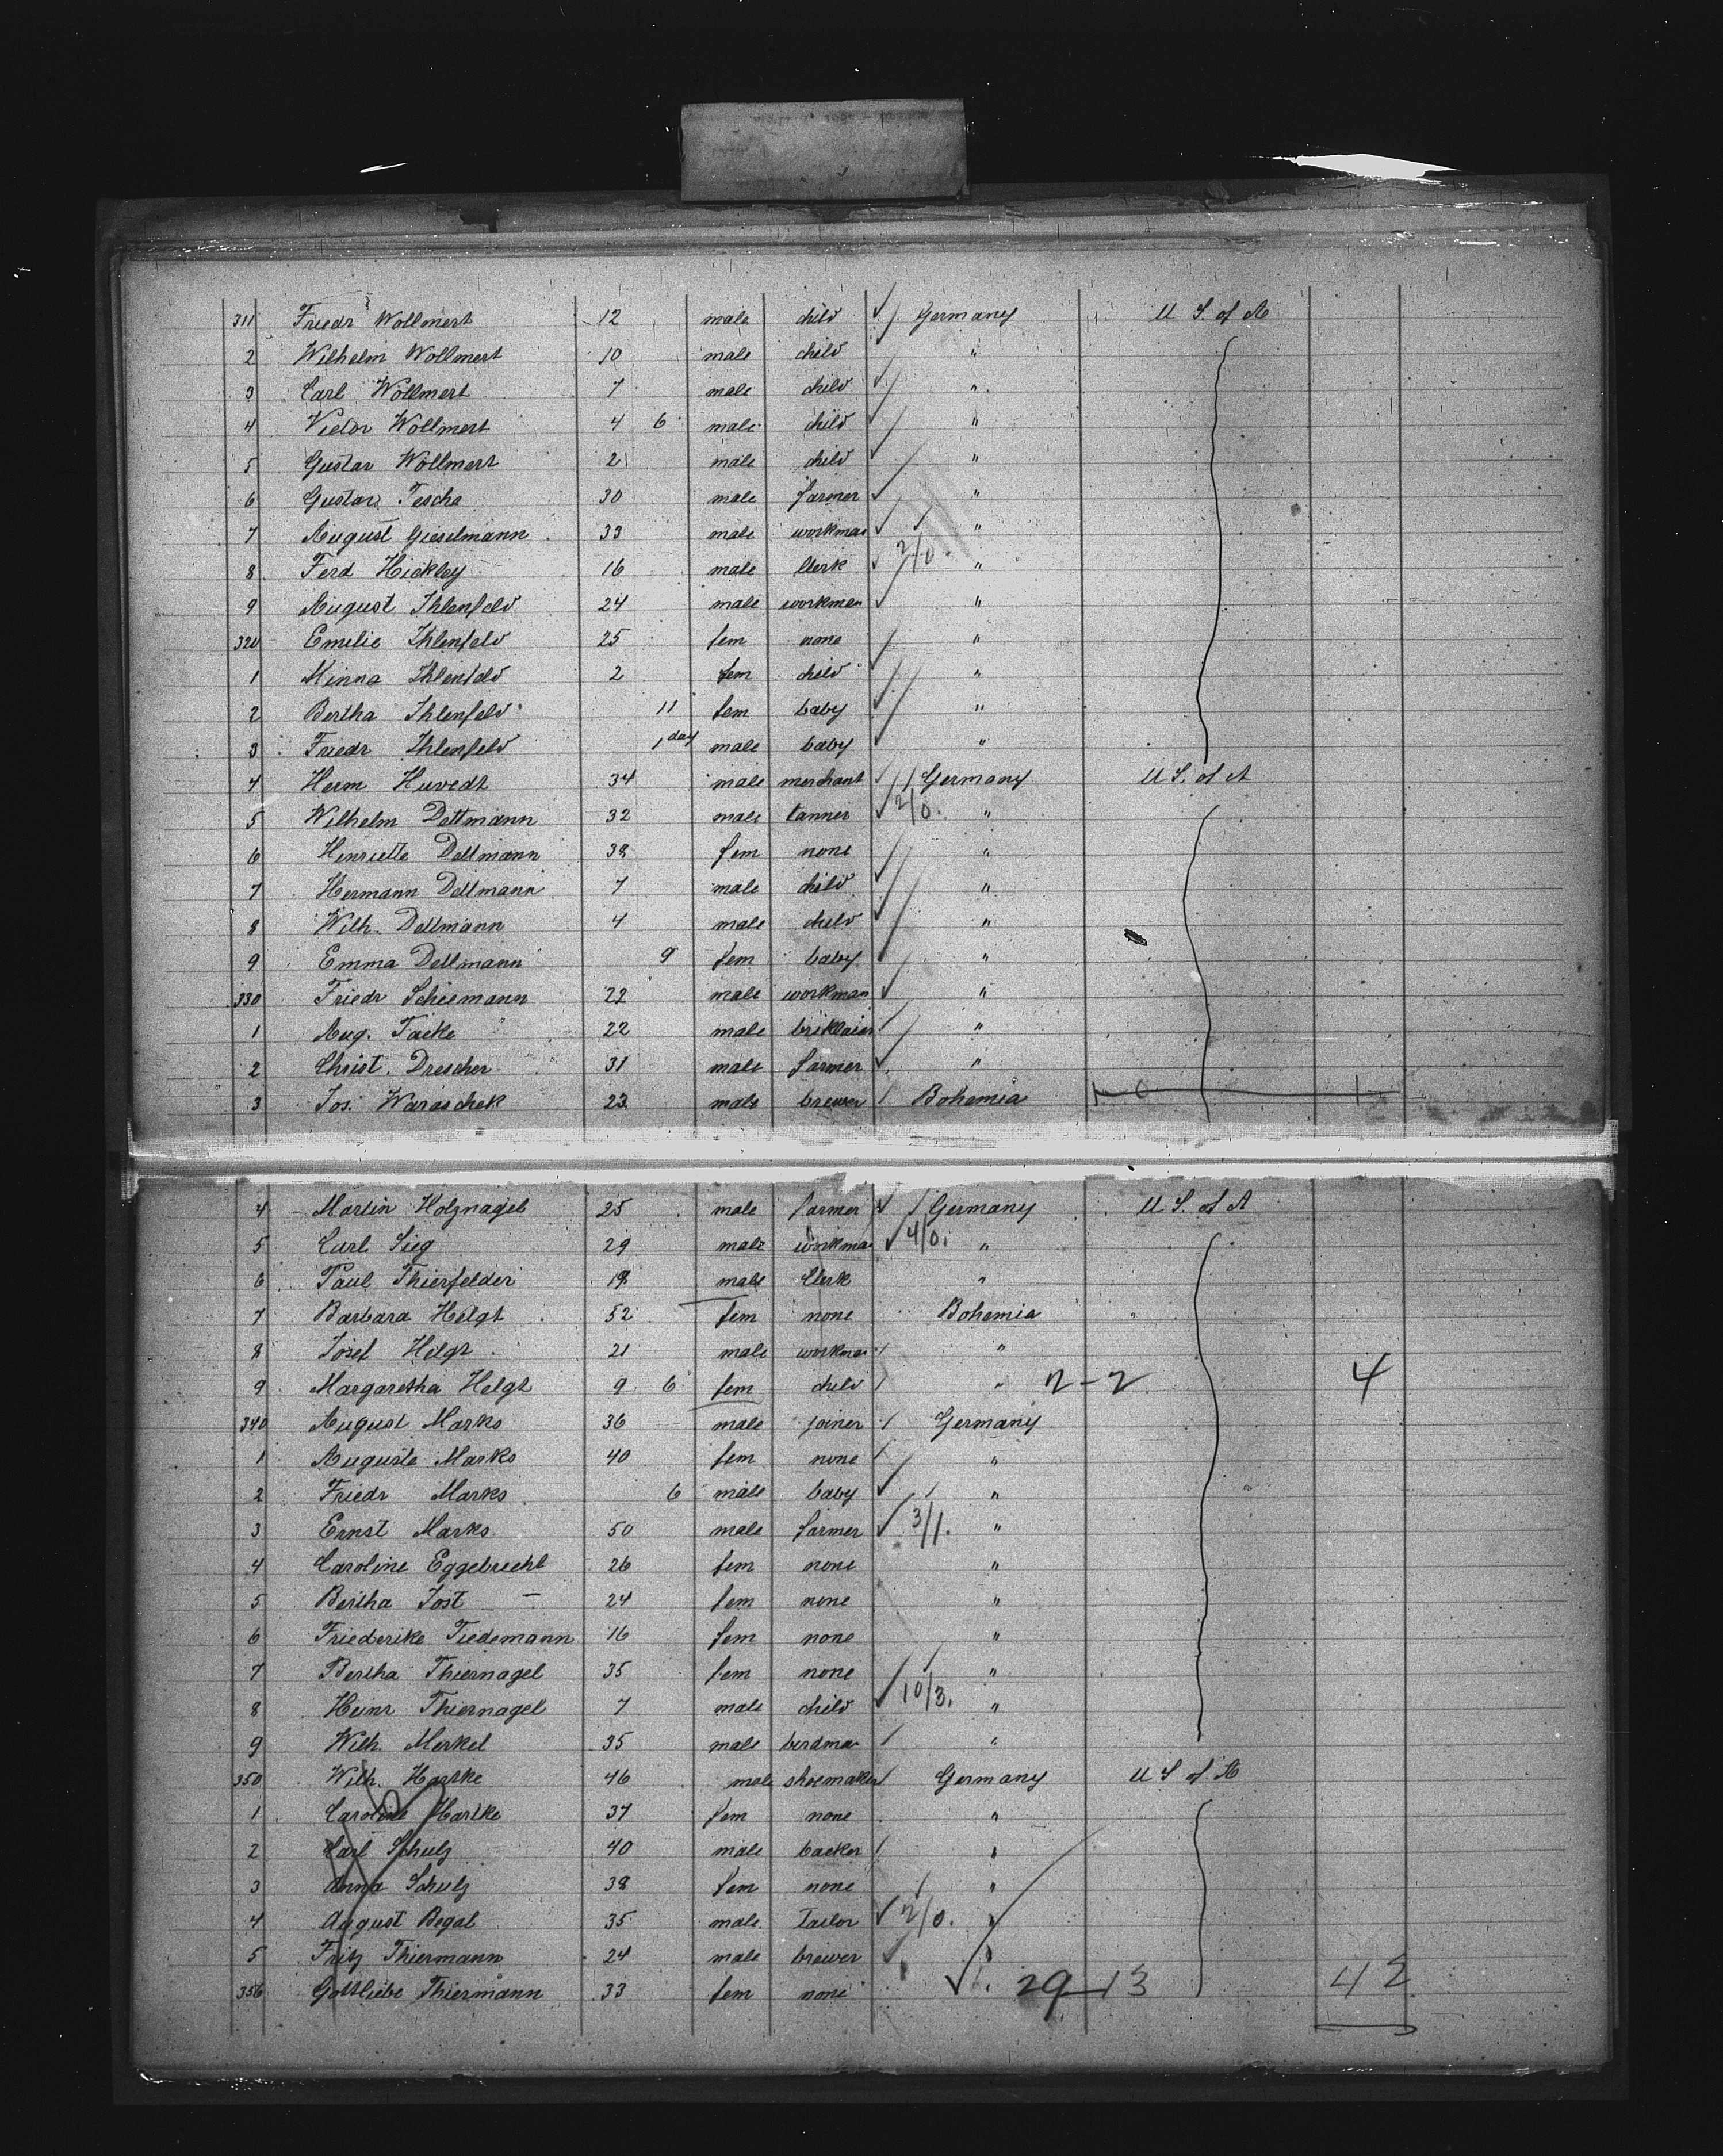 311 Friedr Wollmert 12 male child Germany U S. of A
2 Wilhelm Wollmert 10 male child "
3 Carl Wollmert 7 male child "
4 Victor Wollmert 4 6 male child "
5 Gustav Wollmert 2 male child "
6 Gustav Tesche 30 male farmer "
7 August Gieselmann 33 male workman "
8 Ferd Hickley 16 male Clerk 2/0. "
9 August Ihlenfeld 24 male workman "
320 Emilie Ihlenfeld 25 fem none "
1 Minna Ihlenfeld 2 fem child "
2 Bertha Ihlenfeld 11 fem baby "
3 Friedr Ihlenfeld 1 day male baby "
4 Herm Huvedt 34 male merchant Germany U S. of A
5 Wilhelm Dettmann 32 male tanner 2/0. "
6 Henriette Dettmann 38 fem none "
7 Hermann Dettmann 7 male child "
8 Wilh. Dettmann 4 male child "
9 Emma Dettmann 9 fem baby "
330 Friedr Schiemann 22 male workman "
1 Aug. Tacke 22 male briklaier "
2 Christ. Drescher 31 male farmer "
3 Jos. Waraschek 23 male brewer Bohemia 1 0 1
4 Martin Holznagel 25 male farmer Germany U S. of A
5 Carl Sieg 29 male workman 4/0. "
6 Paul Thierfelder 18 male Clerk "
7 Barbara Helgt 52 fem none Bohemia
8 Josef Helgt 21 male workman "
9 Margaretha Helgt 9 6 fem child " 2-2 4
340 August Marks 36 male joiner Germany
1 Auguste Marks 40 fem none "
2 Friedr Marks 6 male baby "
3 Ernst Marks 50 male farmer 3/1. "
4 Caroline Eggebrecht 26 fem none "
5 Bertha Jost 24 fem none "
6 Friederike Tiedemann 16 fem none "
7 Bertha Thiernagel 35 fem none "
8 Heinr Thiernagel 7 male child 10/3. "
9 Wilh. Merkel 35 male birdman "
350 Wilh. Hartke 46 male shoemaker Germany U S of A
1 Caroline Hartke 37 fem none "
2 Carl Schulz 40 male backer "
3 Anna Schulz 38 fem none "
4 August Begal 35 male Tailor 2/0. "
5 Fritz Thiermann 24 male brewer "
356 Gottliebe Thiermann 33 fem none 29-13 42